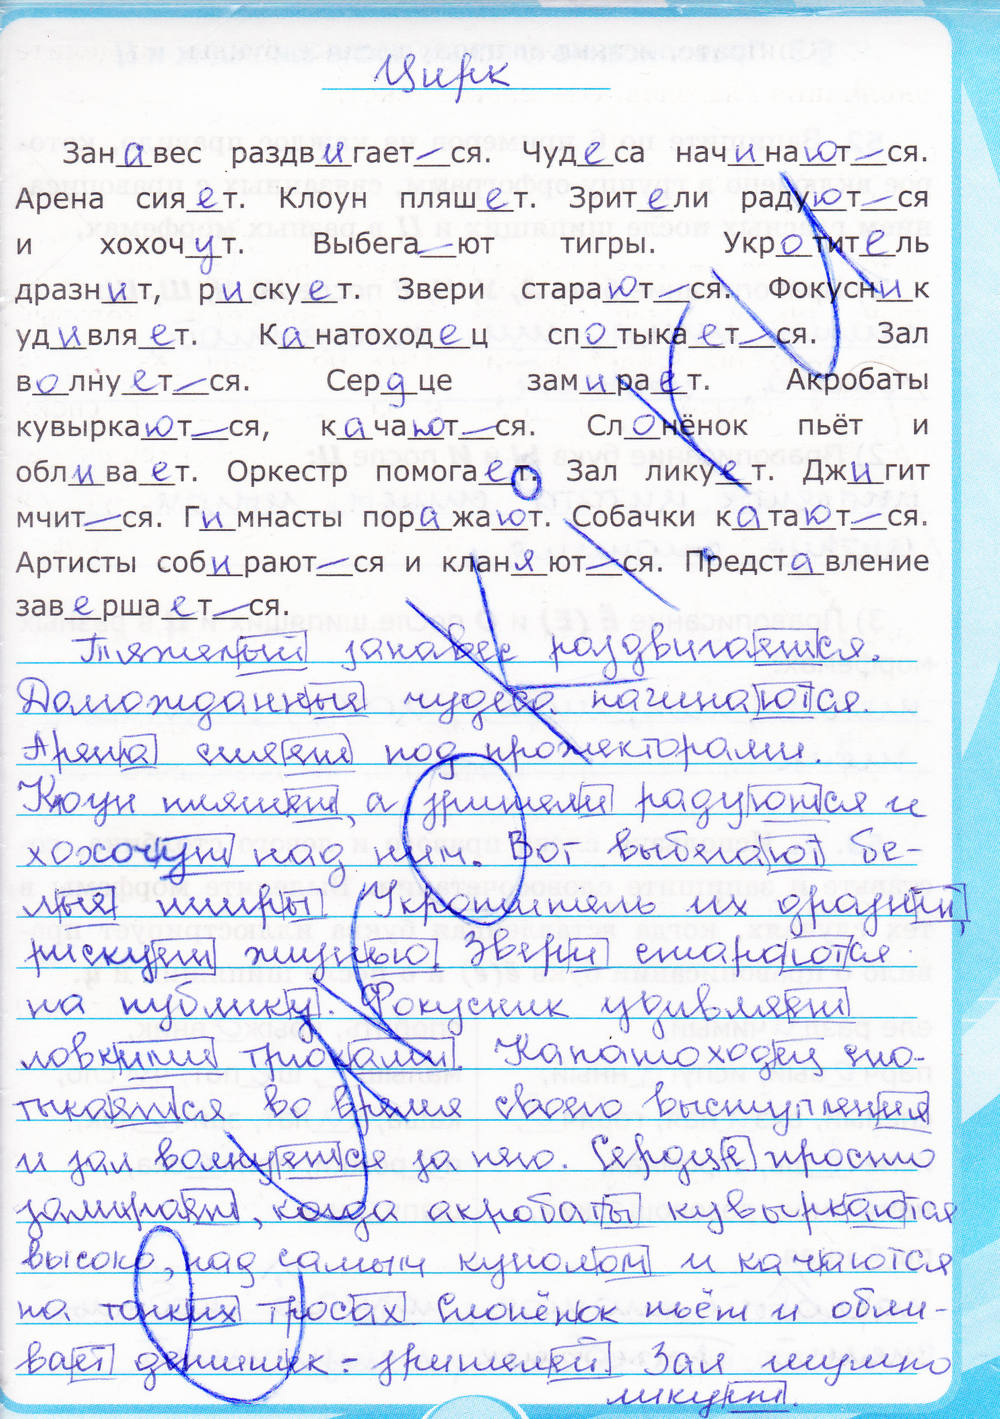 Цирк
Занавес раздвигается. Чудеса начинаются.
Арена сияет. Клоун пляшет. Зрители радуются
и хохочут. Выбегают тигры. Укротитель
дразнит, рискует. Звери стараются. Фокусник
удивляет. Канатоходец спотыкается. Зал
волнуется. Сердце замирает. Акробаты
кувыркаются, качаются. Слонёнок пьёт и
обливает. Оркестр помогает. Зал ликует. Джигит
мчится. Гимнасты поражают. Собачки катаются.
Артисты собираются и кланяются. Представление
завершается.
Тяжелый занавес раздвигается.
Долгожданные чудеса начинаются.
Арена сияет под прожекторами.
Клоун пляшет, а зрители радуются и
хохочут над ним. Вот выбегают бе-
лые тигры. Укротитель их дразнит,
рискует жизнью. Звери стараются
на публику. Фокусник удивляет
ловкими трюками. Канатоходец спо-
тыкается во время своего выступления
и зал волнуется за него. Сердце просто
замирает, когда акробаты кувыркаются
высоко, над самым куполом и качаются
на тонких тросах. Слонёнок пьёт и обли-
вает детишек - зрителей. Зал шумно
ликует.